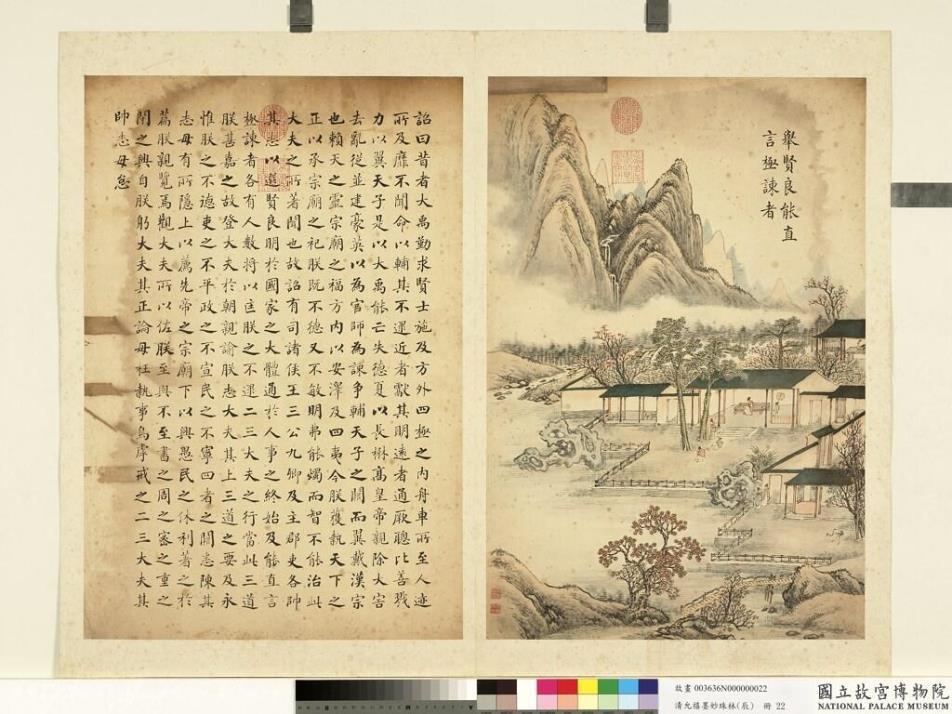 舉賢良能直
言極諫者
詔曰昔者大禹勤求賢士施及方外四極之內舟車所至人迹
所及靡不聞命以輔其不逮近者獻其明遠者通厥聰比善戮
力以翼天子是以大禹能亡失德夏以長楙高皇帝親除大害
去亂從並建豪英以為官師為諫爭輔天子之闕而翼戴漢宗
也賴天之靈宗廟之福方內以安澤及四夷今朕獲執天下之
正以承宗廟之祀朕既不德又不敏明弗能燭而智不能治此
大夫之所著聞也故詔有司諸侯王三公九卿及主郡吏各帥
其志以選賢良明於國家之大體通於人事之終始及能直言
極諫者各有人數將以匡朕之不逮二三大夫之行當此三道
朕甚嘉之故登大夫於朝親諭朕志大夫其上三道之要及永
惟朕之不德吏之不平政之不宣民之不寧四者之闕悉陳其
志毋有所隱上以薦先帝之宗廟下以興愚民之休利著之於
篇朕親覽焉觀大夫所以佐朕至與不至書之周之密之重之
閉之興自朕躬大夫其正論毋枉執事烏虖戒之二三大夫其
帥志毋怠
故畫 003636N000000022
清允禧墨妙珠林(辰) 冊 22
國立故宮博物院
NATIONAL PALACE MUSEUM